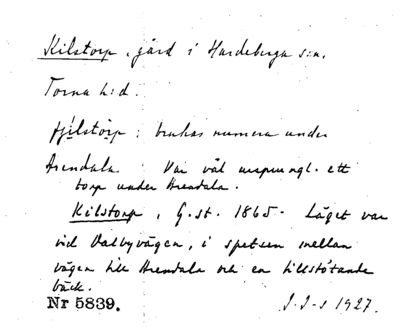 Kilstorp, gård i Hardeberga s:n,
Torna h:d.
fjılstòrp: brukas numera under
Arendala. Var väl ursprungl. ett
torp under Arendala.
Kilstorp, G.st. 1865. Läget var
vid Dalbyvägen, i spetsen mellan
vägen till Arendala och en tillstötande
bäck.
Nr 5839. J.J-s 1927.